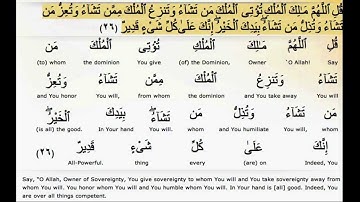 قُلِ اللَّهُمَّ مَالِكَ الْمُلْكِ تُؤْتِي الْمُلْكَ مَن تَشَاءُ وَتَنزِعُ الْمُلْكَ مِمَّن تَشَاءُ وَتُعِزُّ مَن
تَشَاءُ وَتُذِلُّ مَن تَشَاءُ ۖ بِيَدِكَ الْخَيْرُ ۖ إِنَّكَ عَلَىٰ كُلِّ شَيْءٍ قَدِيرٌ (٢٦)
قُلِ اللَّهُمَّ مَالِكَ الْمُلْكِ تُؤْتِي الْمُلْكَ مَن
(to) whom the dominion You give (of) the Dominion, Owner `O Allah! Say
تَشَاءُ وَتَنزِعُ الْمُلْكَ مِمَّن تَشَاءُ وَتُعِزُّ
and You honor You will, from whom the dominion and You take away You will
مَن تَشَاءُ وَتُذِلُّ مَن تَشَاءُ ۖ بِيَدِكَ الْخَيْرُ ۖ
(is all) the good. In Your hand You will. whom and You humiliate You will, whom
إِنَّكَ عَلَىٰ كُلِّ شَيْءٍ قَدِيرٌ (٢٦)
All-Powerful. thing every (are) on Indeed, You
Say, "O Allah, Owner of Sovereignty, You give sovereignty to whom You will and You take sovereignty away from
whom You will. You honor whom You will and You humble whom You will. In Your hand is [all] good. Indeed, You
are over all things competent.